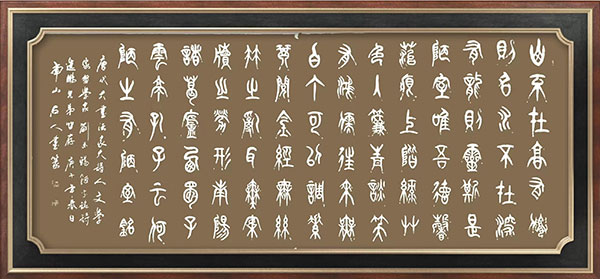 山不在高有僊
則名水不在深
有龍則靈斯是
陋室唯吾德馨
苔痕上階綠草
色入簾青談笑
有鴻儒往來無
白丁可以調素
琴閱金經無絲
竹之亂耳無案
牘之勞形南陽
諸葛廬西蜀子
雲亭孔子云何
陋之有陋室銘
唐代大書法家大詩人文學
家哲學家劉禹錫陋室銘詩
年春日
山石人書篆